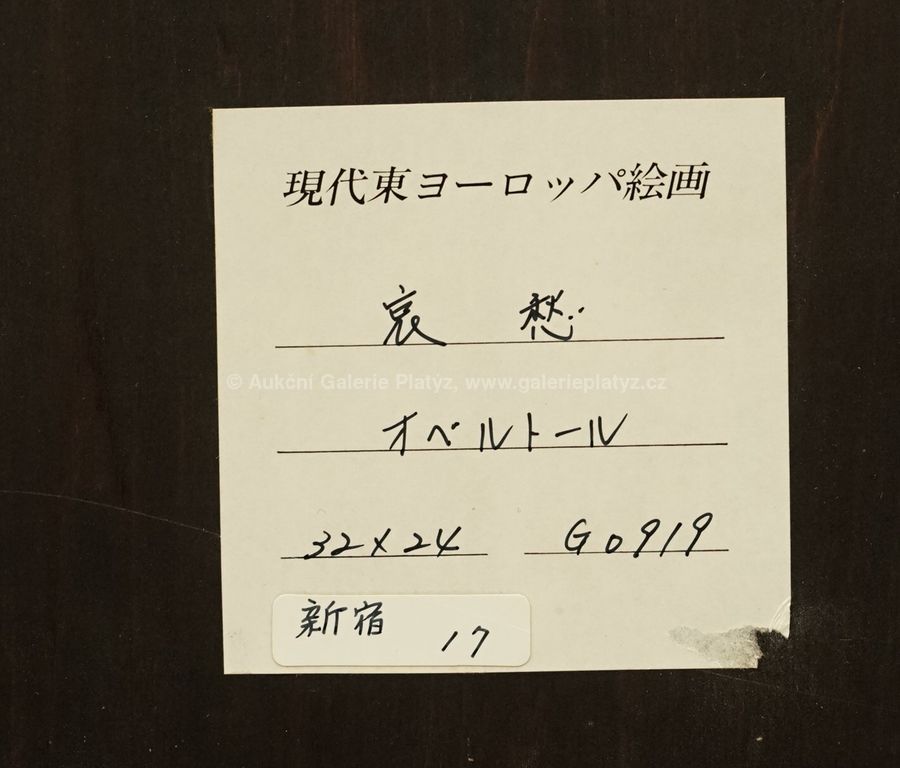 現代東ヨーロッパ絵画
哀愁
© Aukční Galerie Platýz, www.galerieplatyz.cz
オベルトール
32×24 G0919
新宿 17